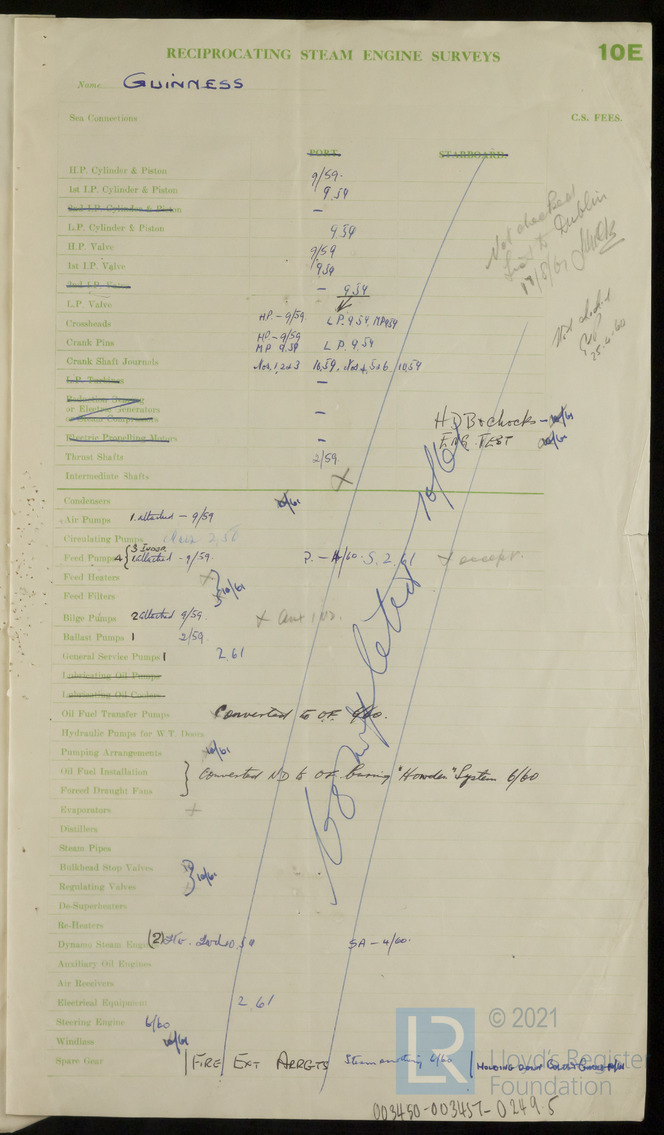 RECIPROCATING STEAM ENGINE SURVEYS
10E
Name GUINNESS
Sea Connections
C.S. FEES.
PORT. STARBOARD.
H.P. Cylinder & Piston 9/59.
1st I.P. Cylinder & Piston 9.59
2nd I.P. Cylinder & Piston –
L.P. Cylinder & Piston 9.59
H.P. Valve 9/59
1st I.P. Valve 9.59
2nd I.P. Valve – 9.59
L.P. Valve
Not checked
Dublin
17/5/61
Crossheads HP – 9/59 LP. 9.59. MP 9.59
Crank Pins HP – 9/59 MP 9.59 L P. 9.59
Not checked
25.4.60
Crank Shaft Journals Nos, 1, 2 + 3 10.59, Nos 4, 5 + 6, 10.59
L.P. Turbines –
Reduction Gearing
or Electric Generators –
H D B + chocks – 10/61
Electric Propelling Motors –
ENG. TEST 10/61
Thrust Shafts 2/59.
Intermediate Shafts X
Condensers 10/61
Air Pumps 1 attached – 9/59
Circulating Pumps
Feed Pumps 4 { 1 attached – 9/59. P. – 4/60. S. 2.61 + except.
Feed Heaters + } 10/61
Feed Filters
Bilge Pumps 2 attached 9/59.
Ballast Pumps 1 2/59.
General Service Pumps 1 2.61
Lubricating Oil Pumps
Lubricating Oil Coolers
Oil Fuel Transfer Pumps Converted to OF 6/60.
Hydraulic Pumps for W.T. Doors
Pumping Arrangements 10/61
Oil Fuel Installation } Converted ND to OF burning "Howden" System 6/60
Forced Draught Fans
Evaporators +
Distillers
Steam Pipes
Bulkhead Stop Valves } 10/61
Regulating Valves
De-Superheaters
Re-Heaters
Dynamo Steam Engines (2) SA – 4/60.
Auxiliary Oil Engines
Air Receivers
Electrical Equipment 2.61
Steering Engine 6/60
Windlass 10/61
Spare Gear | FIRE EXT ARRGTS Steam smothering 6/60 | HOLDING DOWN BOLTS & CHOCKS 10/61
Completed 10/61
© 2021
LR Lloyd's Register
Foundation
003450-003457-0249.5